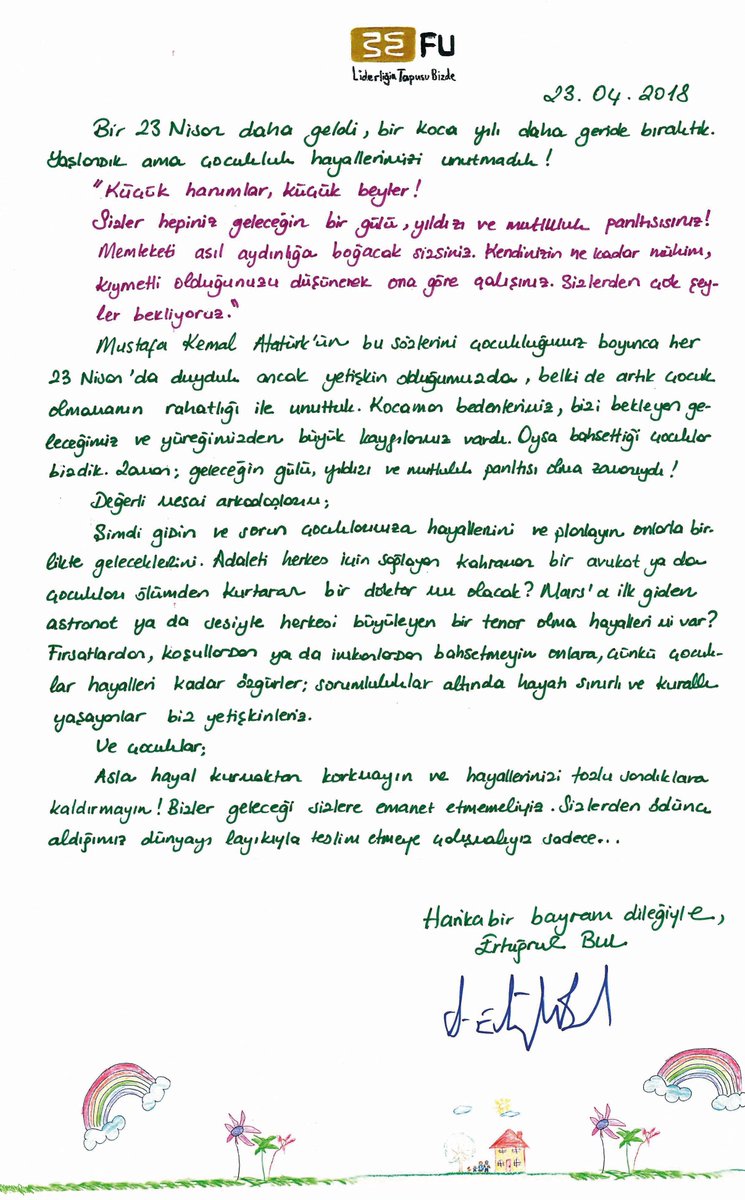 FU
Liderliğin Tapusu Bizde
23.04.2018
Bir 23 Nisan daha geldi, bir koca yılı daha geride bıraktık.
Yaşlandık ama çocukluk hayallerimizi unutmadık!
"Küçük hanımlar, küçük beyler!
Sizler hepiniz geleceğin bir gülü, yıldızı ve mutluluk parıltısısınız!
Memleketi asıl aydınlığa boğacak sizsiniz. Kendinizin ne kadar mühim,
kıymetli olduğunuzu düşünerek ona göre çalışınız. Sizlerden çok şey-
ler bekliyoruz."
Mustafa Kemal Atatürk'ün bu sözlerini çocukluğumuz boyunca her
23 Nisan'da duyduk ancak yetişkin olduğumuzda, belki de artık çocuk
olmamanın rahatlığı ile unuttuk. Kocaman bedenlerimiz, bizi bekleyen ge-
leceğimiz ve yüreğimizden büyük kaygılarımız vardı. Oysa bahsettiği çocuklar
bizdik. Zaman; geleceğin gülü, yıldızı ve mutluluk parıltısı olma zamanıydı!
Değerli mesai arkadaşlarım;
Şimdi gidin ve sorun çocuklarınıza hayallerini ve planlayın onlarla bir-
likte geleceklerini. Adaleti herkes için sağlayan kahraman bir avukat ya da
çocukları ölümden kurtaran bir doktor mu olacak? Mars'a ilk giden
astronot ya da sesiyle herkesi büyüleyen bir tenor olma hayalleri mi var?
Fırsatlardan, koşullardan ya da imkanlardan bahsetmeyin onlara, çünkü çocuk-
lar hayalleri kadar özgürler; sorumluluklar altında hayatı sınırlı ve kurallı
yaşayanlar biz yetişkinleriz.
Ve çocuklar;
Asla hayal kurmaktan korkmayın ve hayallerinizi tozlu sandıklara
kaldırmayın! Bizler geleceği sizlere emanet etmemeliyiz. Sizlerden ödünç
aldığımız dünyayı layıkıyla teslim etmeye çalışmalıyız sadece...
Harika bir bayram dileğiyle,
Ertuğrul Bul